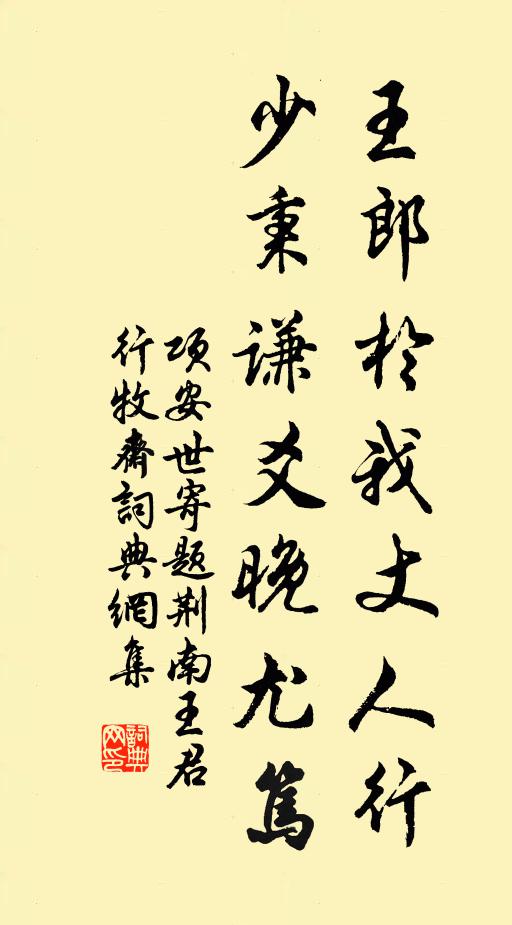 王郎於我丈人行
少秉谦爻晚尤篤
项安世寄题荆南王君
行牧齋詞典網集
詞典
网印